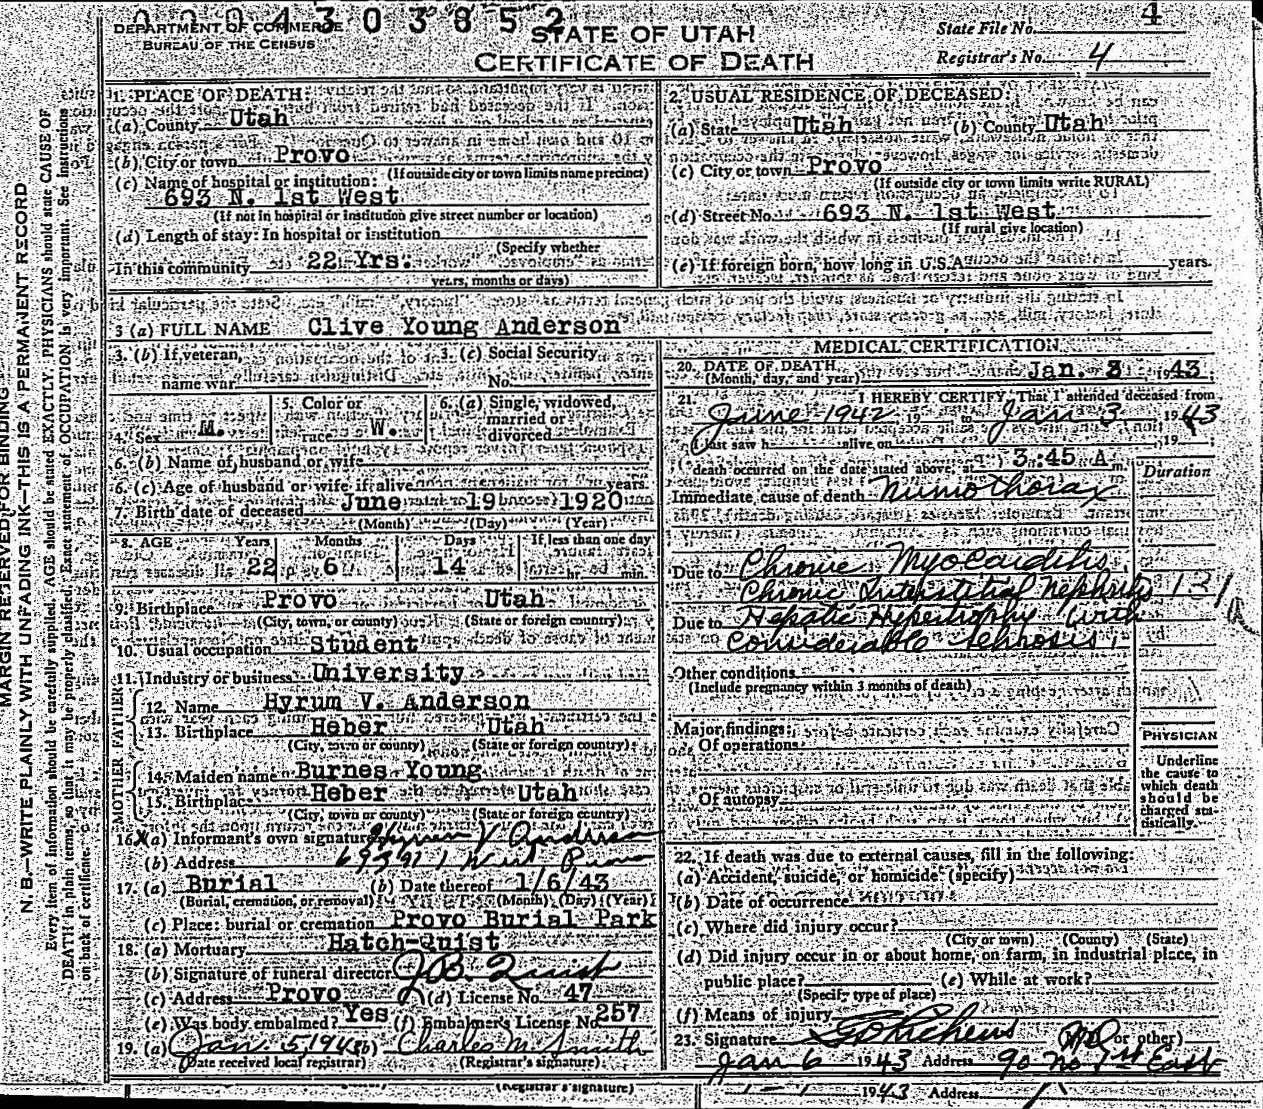 0 0 0 4 3 0 3 8 5 2
DEPARTMENT OF COMMERCE
BUREAU OF THE CENSUS
STATE OF UTAH
CERTIFICATE OF DEATH
State File No. 4
Registrar's No. 4
MARGIN RESERVED FOR BINDING
N. B.—WRITE PLAINLY WITH UNFADING INK—THIS IS A PERMANENT RECORD
Every item of information should be carefully supplied. AGE should be stated EXACTLY. PHYSICIANS should state CAUSE OF
DEATH in plain terms, so that it may be properly classified. Exact statement of OCCUPATION is very important. See instructions
on back of certificate.
1. PLACE OF DEATH:
(a) County Utah
(b) City or town Provo
(If outside city or town limits name precinct)
(c) Name of hospital or institution:
693 N. 1st West
(If not in hospital or institution give street number or location)
(d) Length of stay: In hospital or institution
(Specify whether
In this community 22 Yrs.
years, months or days)
2. USUAL RESIDENCE OF DECEASED:
(a) State Utah (b) County Utah
(c) City or town Provo
(If outside city or town limits write RURAL)
(d) Street No. 693 N. 1st West
(If rural give location)
(e) If foreign born, how long in U.S.A. years.
3 (a) FULL NAME Clive Young Anderson
3. (b) If veteran,
name war
3. (c) Social Security
No.
4. Sex M.
5. Color or
race W.
6. (a) Single, widowed,
married or
divorced
6. (b) Name of husband or wife
6. (c) Age of husband or wife if alive years
7. Birth date of deceased June 19 1920
(Month) (Day) (Year)
8. AGE Years Months Days If less than one day
22 6 14 hr. min.
9. Birthplace Provo Utah
(City, town, or county) (State or foreign country)
10. Usual occupation Student
11. Industry or business University
FATHER
12. Name Hyrum V. Anderson
13. Birthplace Heber Utah
(City, town or county) (State or foreign country)
MOTHER
14. Maiden name Burnes Young
15. Birthplace Heber Utah
(City, town or county) (State or foreign country)
16. X (a) Informant's own signature Hyrum V Anderson
(b) Address 693 N 1 West Provo
17. (a) Burial (b) Date thereof 1/6/43
(Burial, cremation, or removal) (Month) (Day) (Year)
(c) Place: burial or cremation Provo Burial Park
18. (a) Mortuary Hatch-Quist
(b) Signature of funeral director J B. Quist
(c) Address Provo (d) License No. 47
(e) Was body embalmed? Yes (f) Embalmer's License No. 257
19. (a) Jan. 5, 1943 (b) Charles M. Smith
(Date received local registrar) (Registrar's signature)
MEDICAL CERTIFICATION
20. DATE OF DEATH Jan. 3 1943
(Month, day, and year)
21. I HEREBY CERTIFY, That I attended deceased from
June 1942 19 to Jan 3 1943
I last saw h alive on 19 ;
death occurred on the date stated above, at 3:45 A m.
Duration
Immediate cause of death Numothorax
Due to Chronic Myocarditis,
Chronic Interstitial Nephritis 131
a
Due to Hepatic Hypertrophy with
Considerable schrosis,
Other conditions
(Include pregnancy within 3 months of death)
Major findings:
Of operations
Of autopsy
PHYSICIAN
Underline
the cause to
which death
should be
charged sta-
tistically.
22. If death was due to external causes, fill in the following:
(a) Accident, suicide, or homicide (specify)
(b) Date of occurrence
(c) Where did injury occur?
(City or town) (County) (State)
(d) Did injury occur in or about home, on farm, in industrial place, in
public place? (e) While at work?
(Specify type of place)
(f) Means of injury
23. Signature (MD or other)
Jan 6 1943 Address 90 No 1st East
(Registrar's signature)
1943 Address